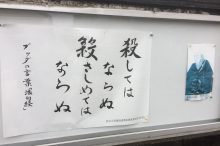 殺しては
ならぬ
殺さしめては
ならぬ
ブッダの言葉 法句経